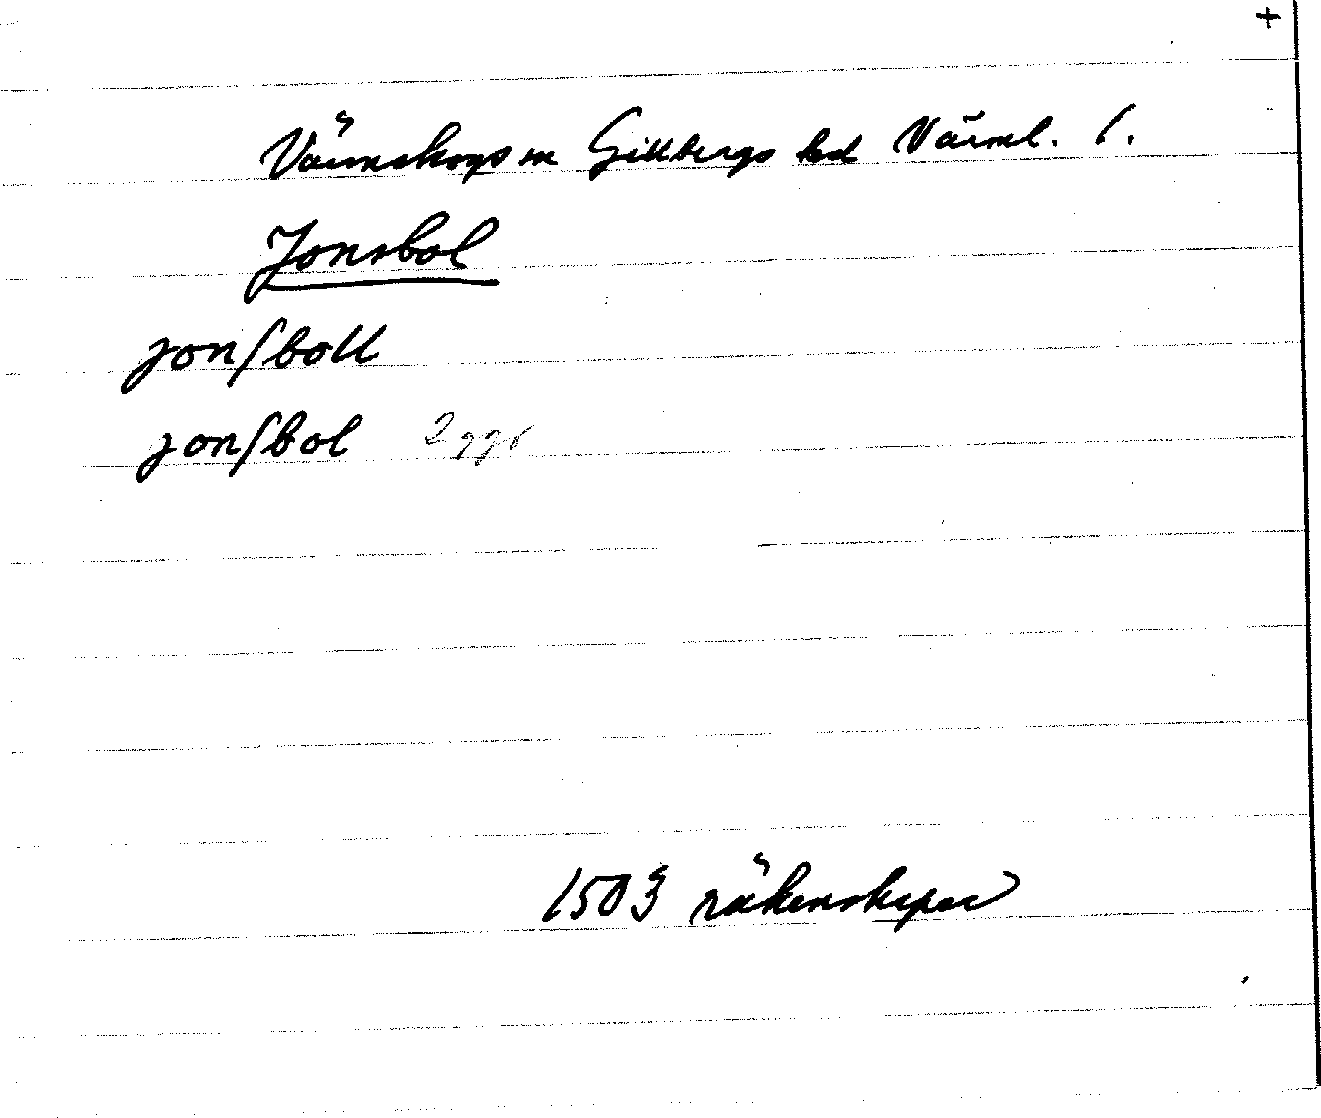 +
Värmskogs sn Gillbergs hd Värml. l.
Jonsbol
jonſboll
jonſbol 2 ggr
1503 räkenskaper